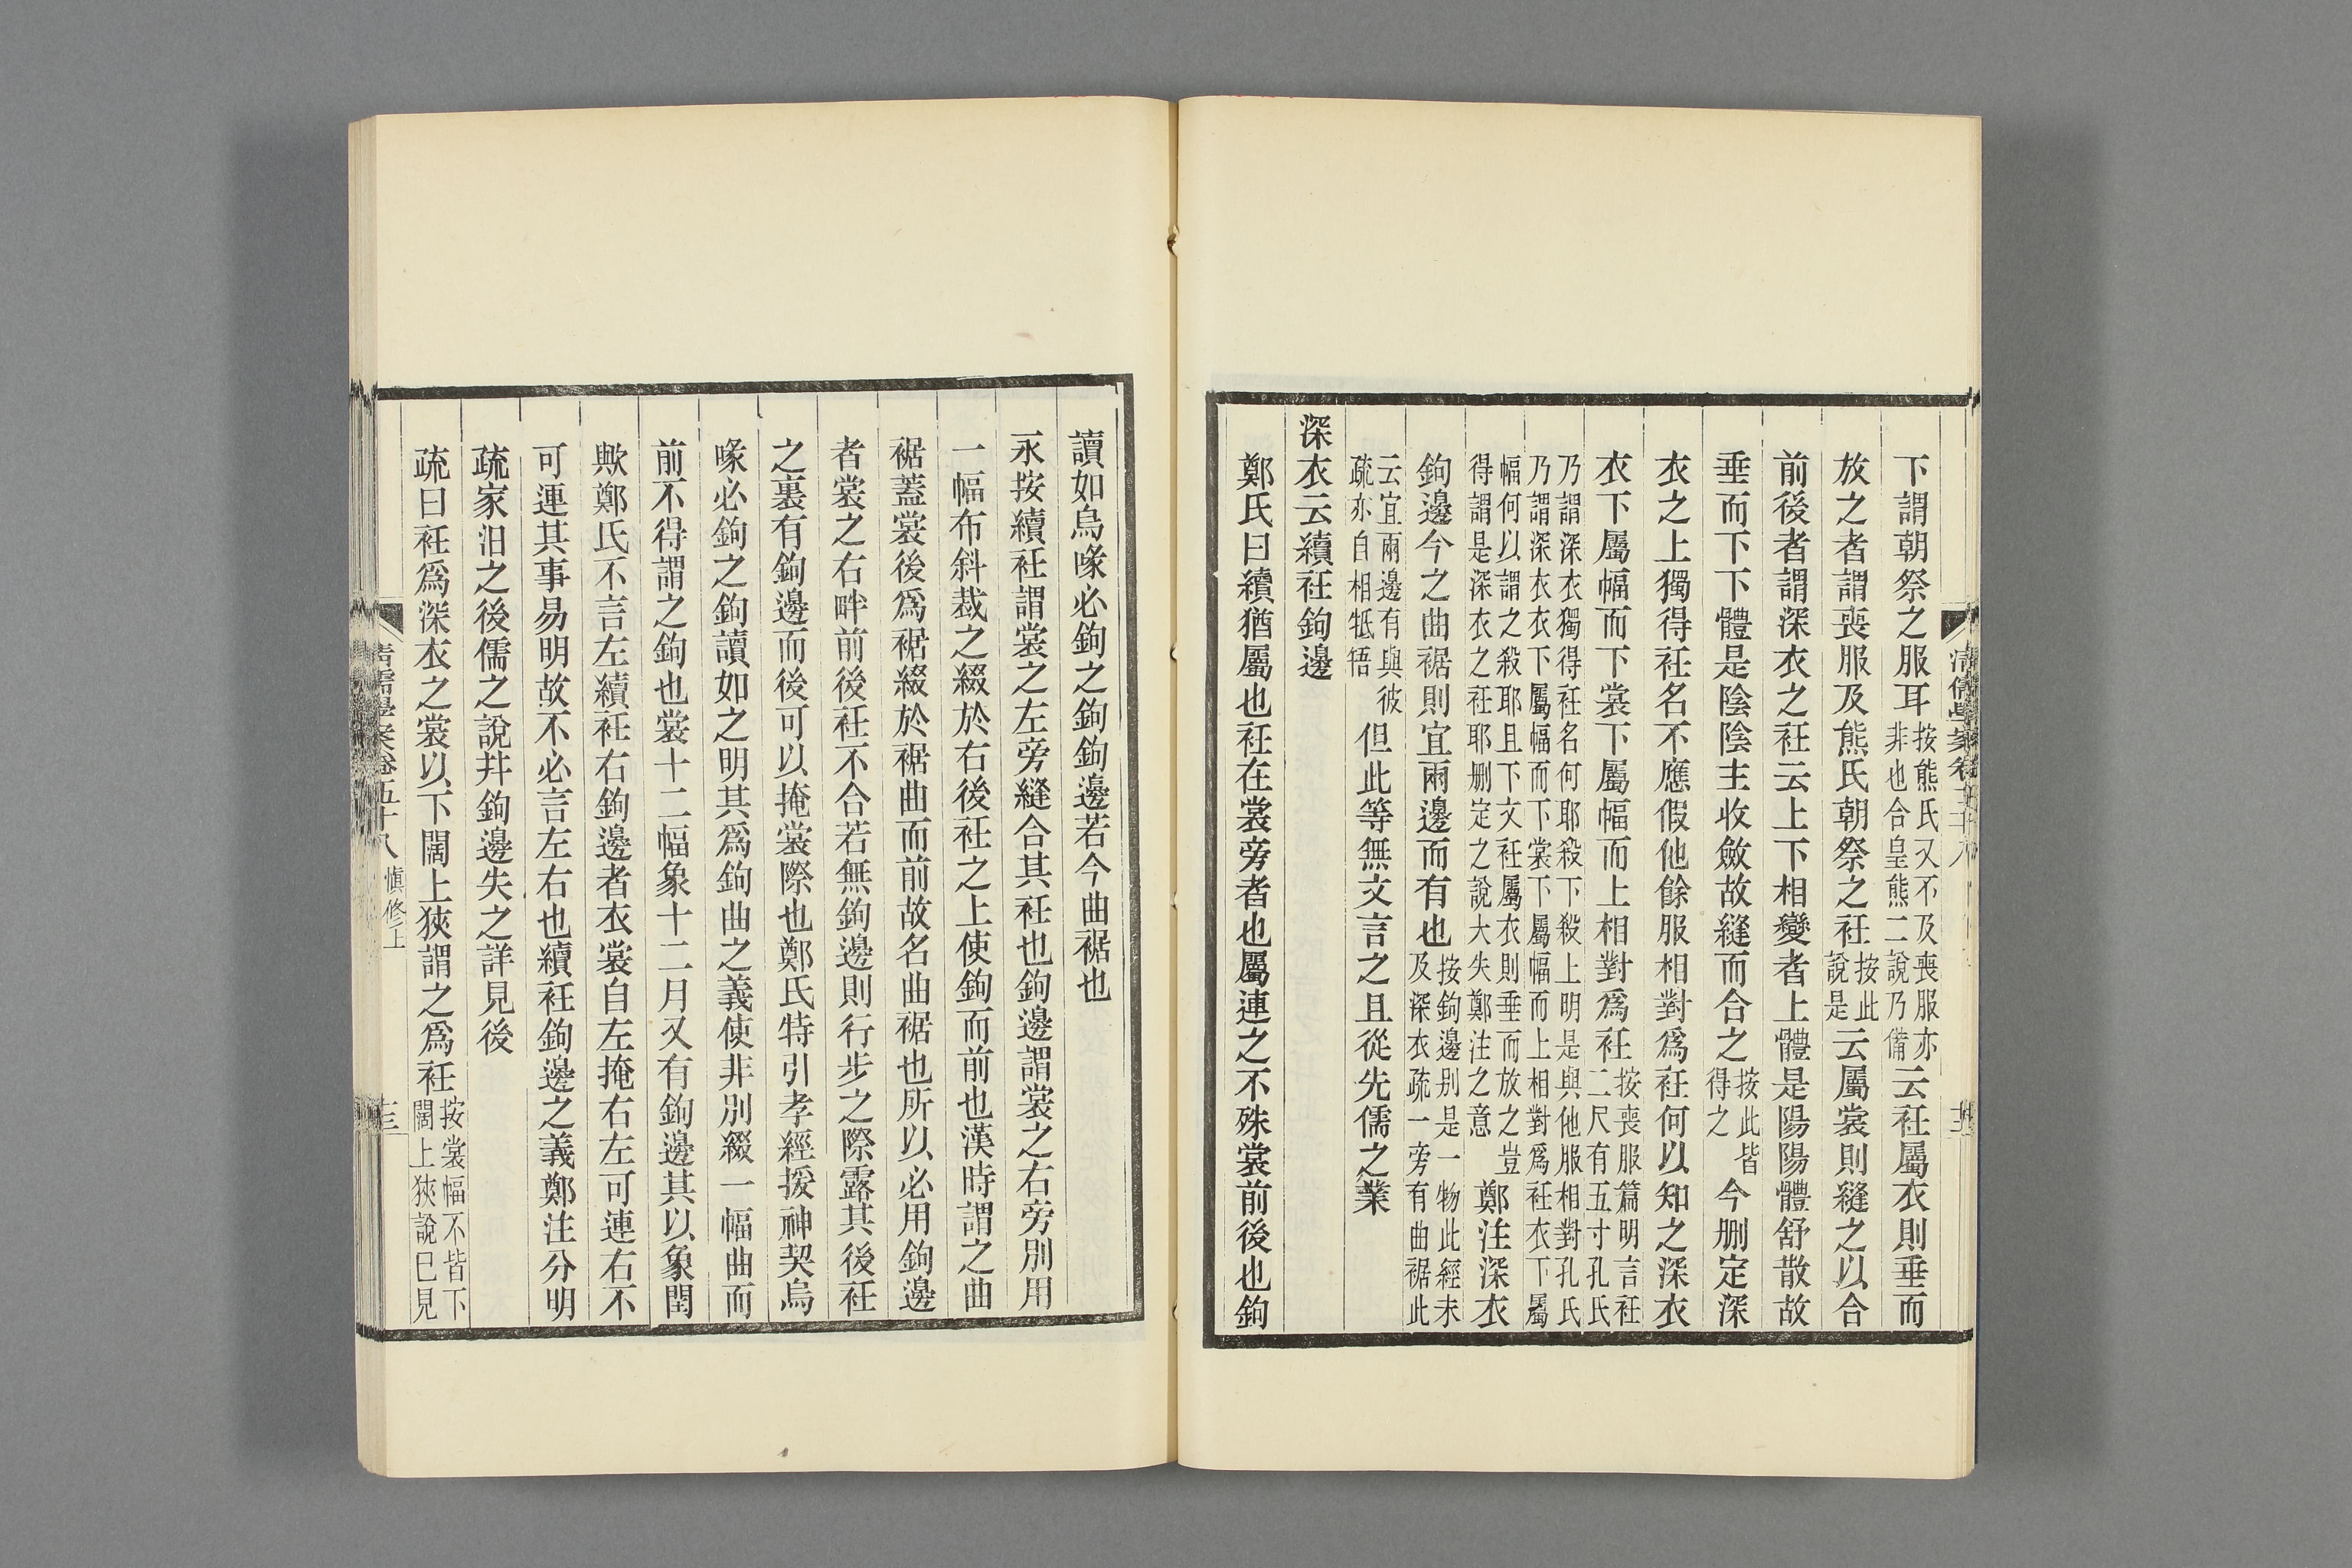 下謂朝祭之服耳按熊氏又不及喪服亦非也合皇熊二說乃備云衽屬衣則垂而
放之者謂喪服及熊氏朝祭之衽按此說是云屬裳則縫之以合
前後者謂深衣之衽云上下相變者上體是陽陽體舒散故
垂而下下體是陰陰主收斂故縫而合之按此皆得之今刪定深
衣之上獨得衽名不應假他餘服相對爲衽何以知之深衣
衣下屬幅而下裳下屬幅而上相對爲衽按喪服篇明言衽二尺有五寸孔氏
乃謂深衣獨得衽名何耶殺下殺上明是與他服相對孔氏
乃謂深衣衣下屬幅而下裳下屬幅而上相對爲衽衣下屬
幅何以謂之殺耶且下文衽屬衣則垂而放之豈
得謂是深衣之衽耶刪定之說大失鄭注之意鄭注深衣
鉤邊今之曲裾則宜兩邊而有也按鉤邊別是一物此經未及深衣疏一旁有曲裾此
云宜兩邊有與彼疏亦自相牴牾但此等無文言之且從先儒之業
深衣云續衽鉤邊
鄭氏曰續猶屬也衽在裳旁者也屬連之不殊裳前後也鉤
讀如烏喙必鉤之鉤鉤邊若今曲裾也
永按續衽謂裳之左旁縫合其衽也鉤邊謂裳之右旁別用
一幅布斜裁之綴於右後衽之上使鉤而前也漢時謂之曲
裾蓋裳後爲裾綴於裾曲而前故名曲裾也所以必用鉤邊
者裳之右畔前後衽不合若無鉤邊則行步之際露其後衽
之裏有鉤邊而後可以掩裳際也鄭氏特引孝經援神契烏
喙必鉤之鉤讀如之明其爲鉤曲之義使非別綴一幅曲而
前不得謂之鉤也裳十二幅象十二月又有鉤邊其以象閏
歟鄭氏不言左續衽右鉤邊者衣裳自左掩右左可連右不
可連其事易明故不必言左右也續衽鉤邊之義鄭注分明
疏家汨之後儒之說幷鉤邊失之詳見後
疏曰衽爲深衣之裳以下闊上狹謂之爲衽按裳幅不皆下闊上狹說已見
清儒學案卷五十八 愼修上
十三